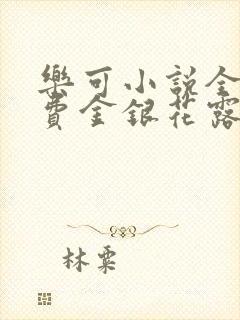 樂可小說全
費金銀花露
林粟